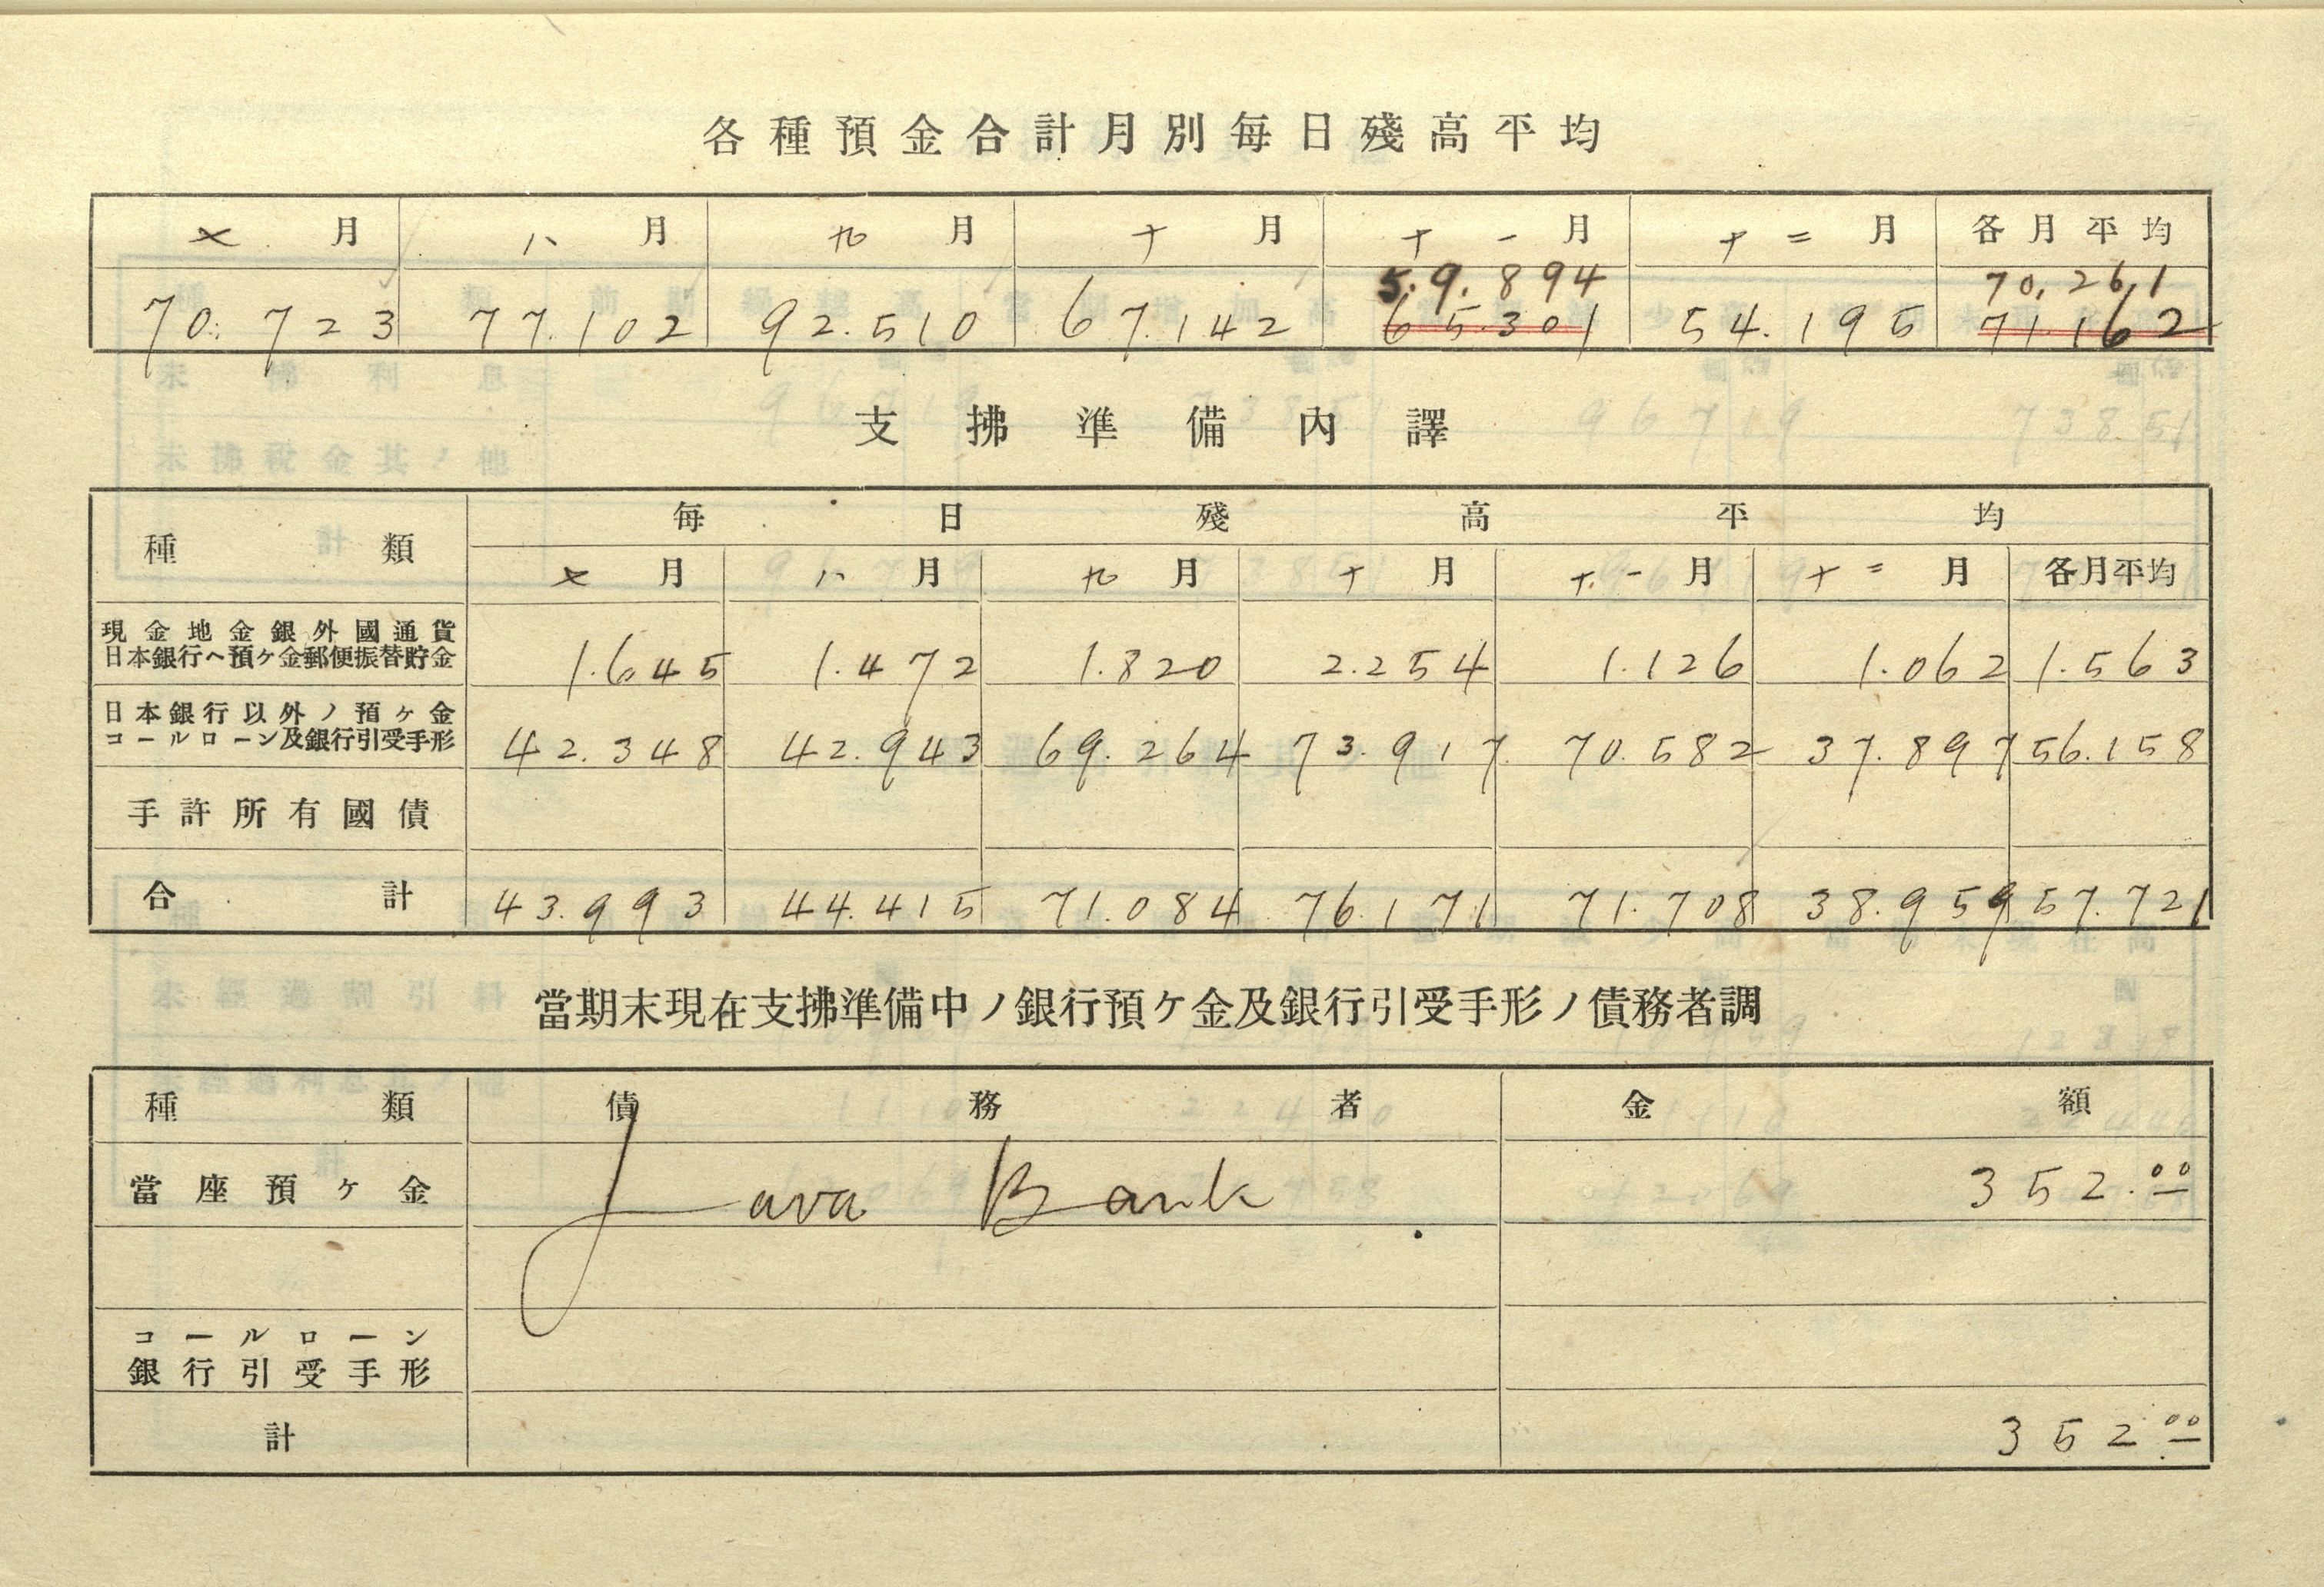 各種預金合計月別每日殘高平均
七月 八月 九月 十月 十一月 十二月 各月平均
59.894 70,261
70.723 77.102 92.510 67.142 65.301 54.195 71.162
支拂準備內譯
種類 每日殘高平均
七月 八月 九月 十月 十一月 十二月 各月平均
現金地金銀外國通貨
日本銀行ヘ預ケ金郵便振替貯金 1.645 1.472 1.820 2.254 1.126 1.062 1.563
日本銀行以外ノ預ヶ金
コールローン及銀行引受手形 42.348 42.943 69.264 73.917 70.582 37.897 56.158
手許所有國債
合計 43.993 44.415 71.084 76.171 71.708 38.959 57.721
當期末現在支拂準備中ノ銀行預ケ金及銀行引受手形ノ債務者調
種類 債務者 金額
當座預ヶ金 Java Bank 352.00
コールローン
銀行引受手形
計 352.00